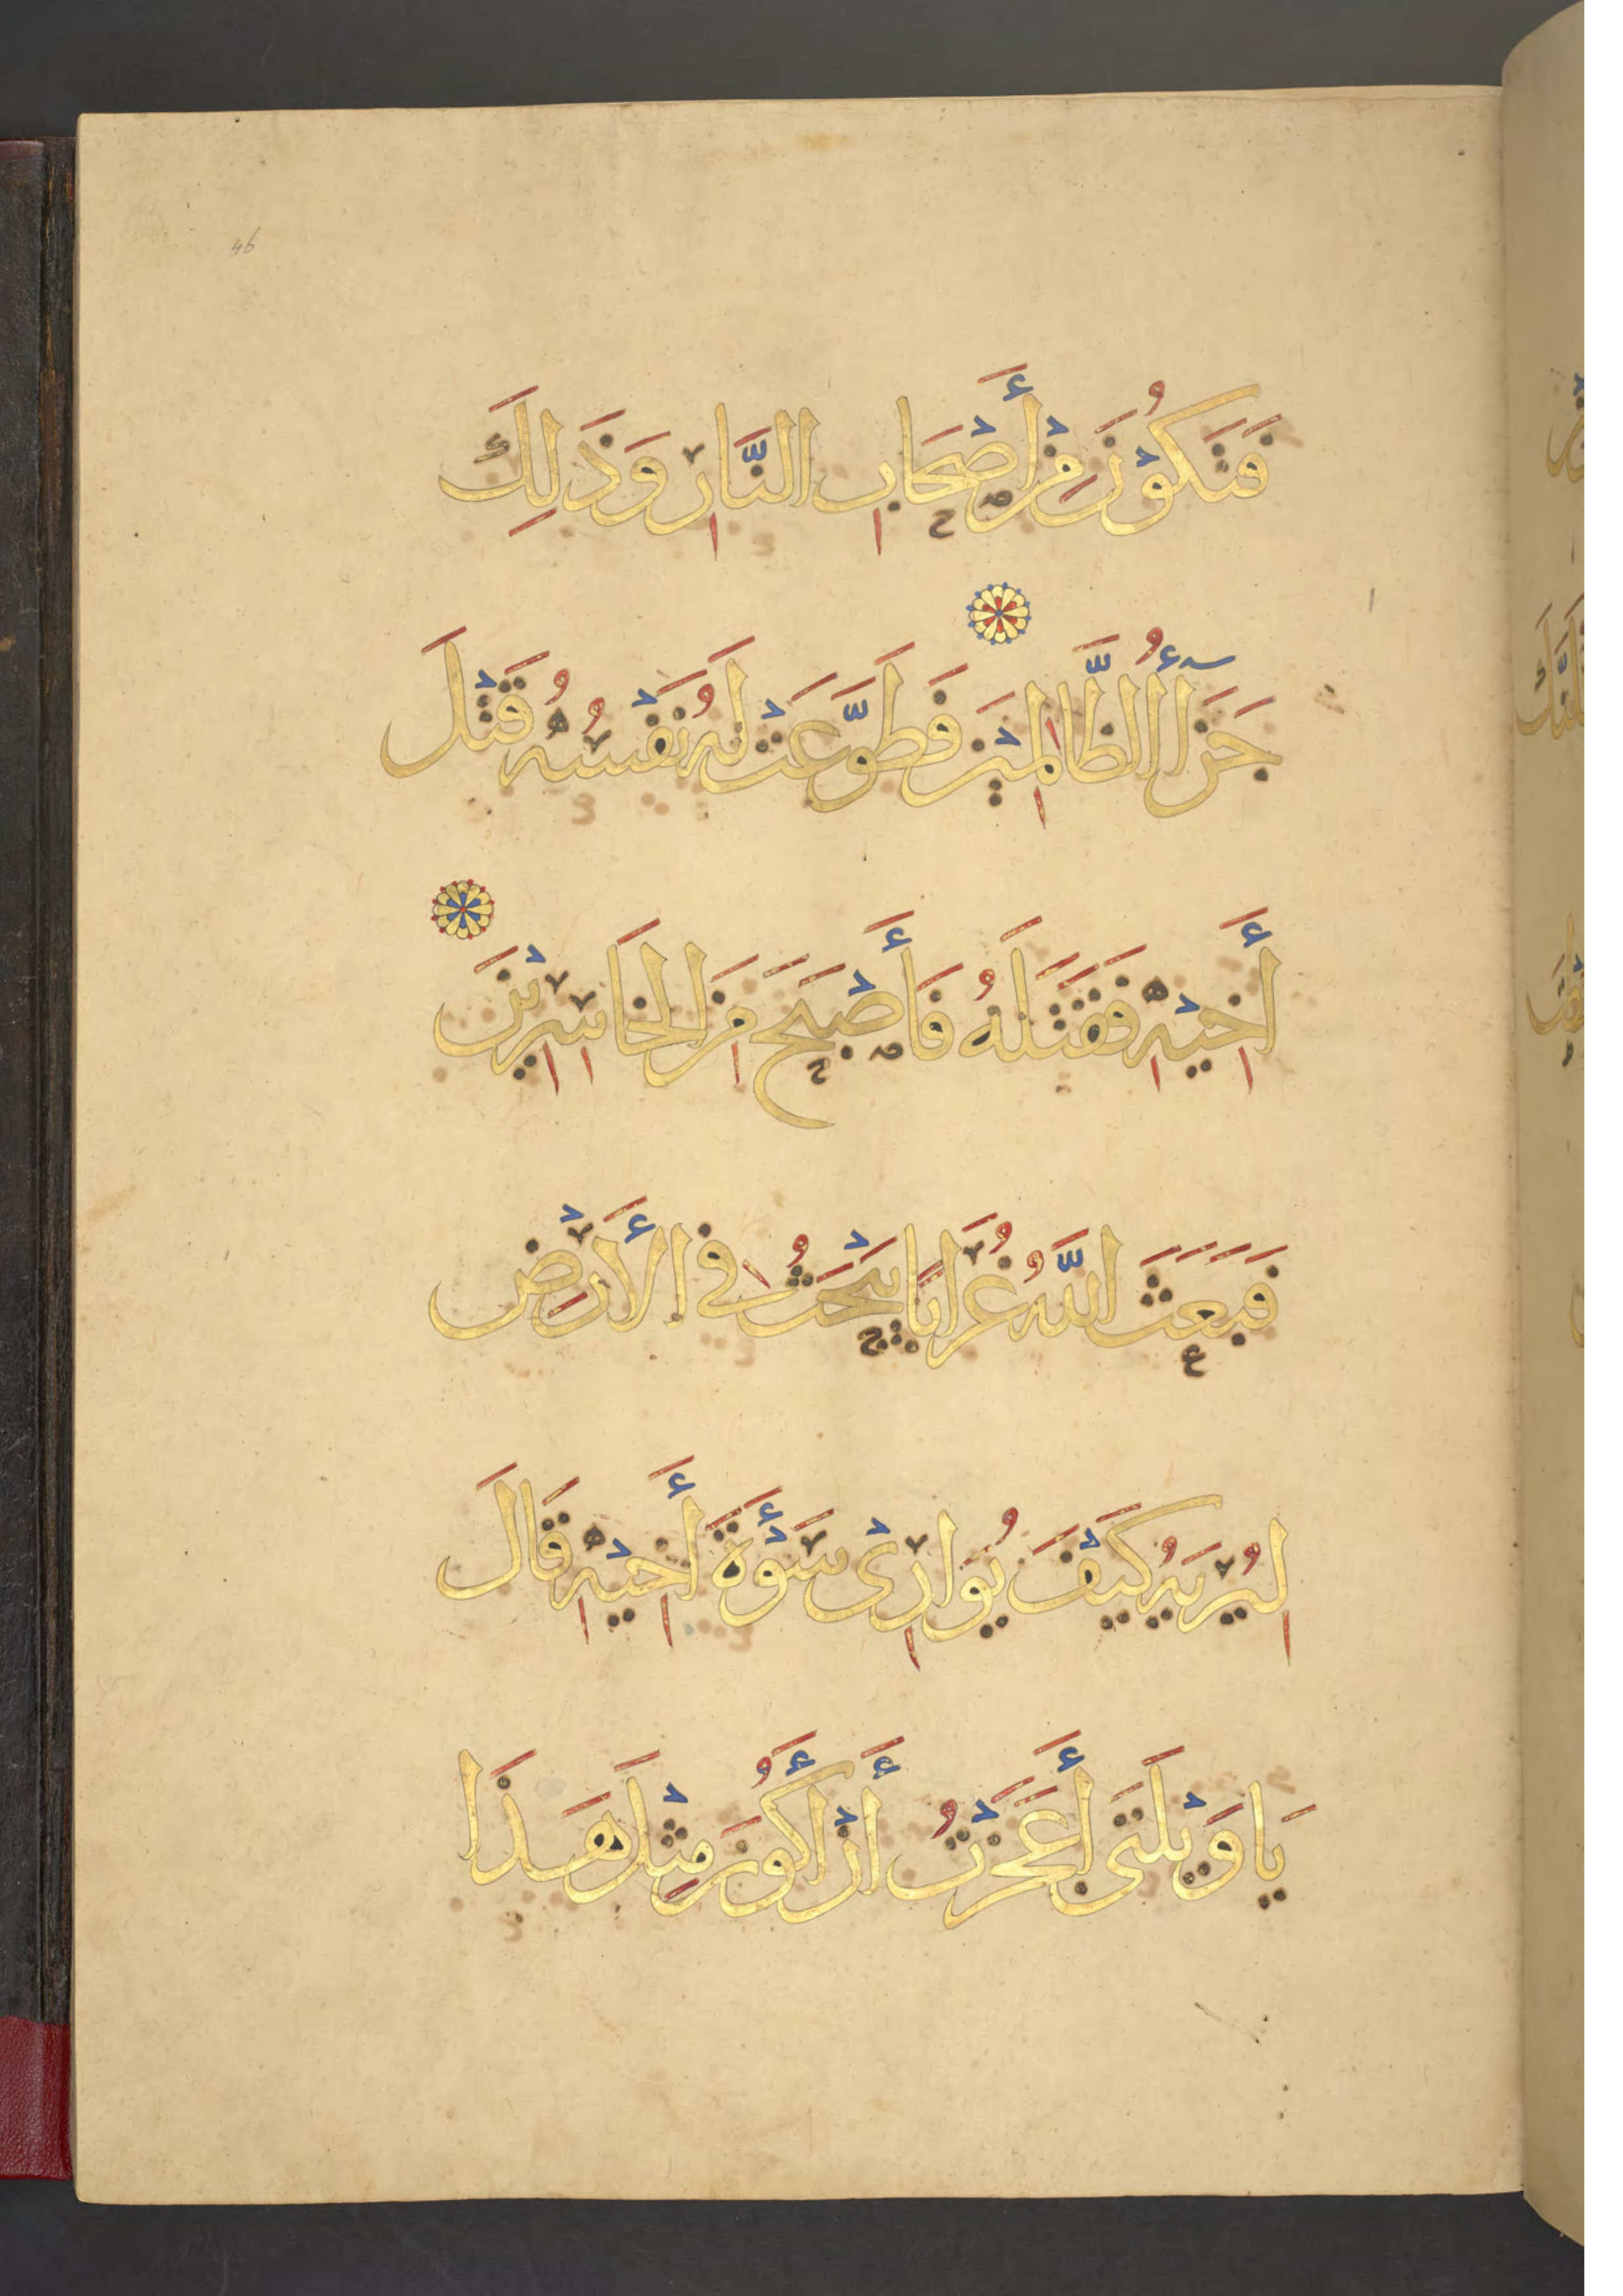 46
فَتَكُوْنَ مِنْ أَصْحَابِ النَّارِ وَذَلِكَ
جَزَآؤُا الظَّالِمِيْنَ فَطَوَّعَتْ لَهُ نَفْسُهُ قَتْلَ
أَخِيْهِ فَقَتَلَهُ فَأَصْبَحَ مِنَ الْخَاسِرِيْنَ
فَبَعَثَ اللَّهُ غُرَابًا يَبْحَثُ فِي الأَرْضِ
لِيُرِيَهُ كَيْفَ يُوَارِىْ سَوْءَةَ أَخِيْهِ قَالَ
يَا وَيْلَتَى أَعَجَزْتُ أَنْ أَكُوْنَ مِثْلَ هَذَا